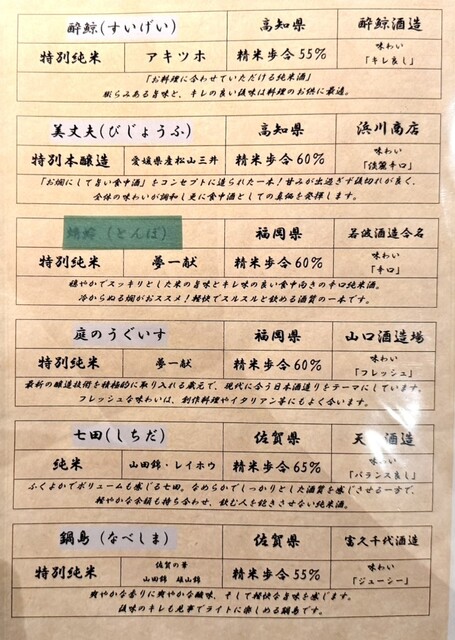 酔鯨(すいげい) 高知県 酔鯨酒造
特別純米 アキツホ 精米歩合55% 味わい「キレ良し」
「お料理に合わせていただける純米酒」
膨らみある旨味と、キレの良い後味は料理のお供に最適。
美丈夫(びじょうふ) 高知県 浜川商店
特別本醸造 愛媛県産松山三井 精米歩合60% 味わい「淡麗辛口」
「お燗にして旨い食中酒」をコンセプトに造られた一本!甘みが出過ぎず後切れが良く、
全体の味わいが調和し更に食中酒としての真価を発揮します。
蜻蛉(とんぼ) 福岡県 若波酒造合名
特別純米 夢一献 精米歩合60% 味わい「辛口」
穏やかでスッキリとした米の旨味とキレ味の良い食中向きの辛口純米酒。
冷からぬる燗がおススメ!軽快でスルスルと飲める酒質の一本です。
庭のうぐいす 福岡県 山口酒造場
特別純米 夢一献 精米歩合60% 味わい「フレッシュ」
最新の醸造技術を積極的に取り入れる蔵元で、現代に合う日本酒造りをテーマにしています。
フレッシュな味わいは、創作料理やイタリアン等にもよく合います。
七田(しちだ) 佐賀県 天山酒造
純米 山田錦・レイホウ 精米歩合65% 味わい「バランス良し」
ふくよかでボリュームも感じる七田。なめらかでしっかりとした酒質を感じさせる一方で、
軽やかな余韻も持ち合わせ、飲む人を飽きさせない純米酒。
鍋島(なべしま) 佐賀県 富久千代酒造
特別純米 佐賀の華 山田錦 雄山錦 精米歩合55% 味わい「ジューシー」
爽やかな香りに爽やかな酸味、そして軽快な旨味を感じます。
後味のキレも見事でライトに楽しめる鍋島です。